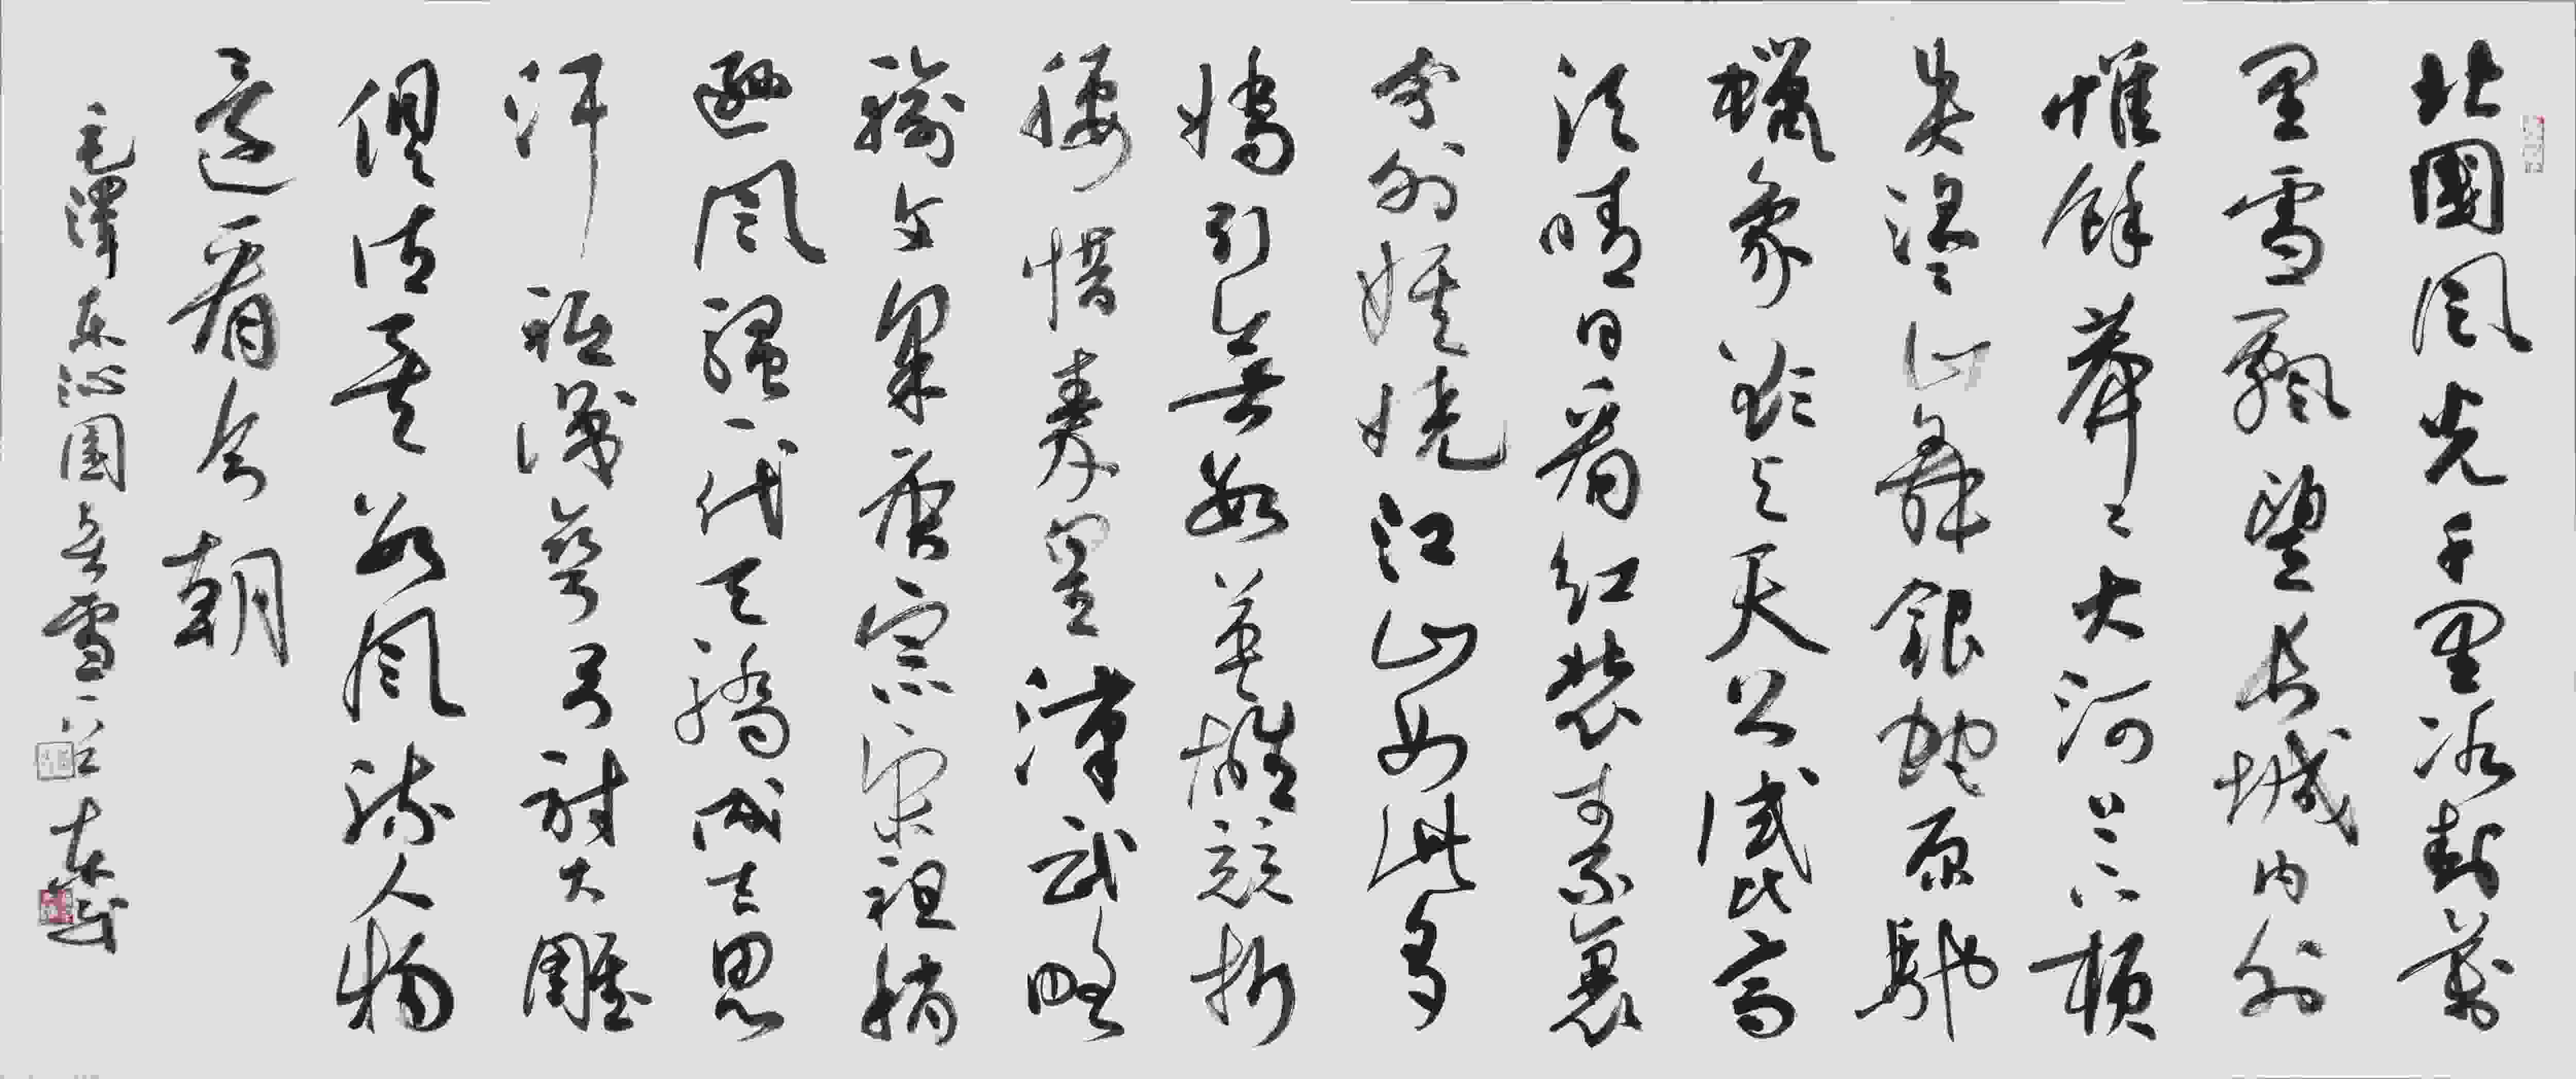 北國風光千里冰封萬
里雪飄望長城內外
惟餘莽々大河上下頓
失滔々山舞銀蛇原馳
蠟象欲与天公試比高
須晴日看紅裝素裹
分外妖嬈江山如此多
嬌引無數英雄競折
腰惜秦皇漢武略
輸文采唐宗宋祖稍
遜風騷一代天驕成吉思
汗祇識彎弓射大雕
俱往矣數風流人物
還看今朝
毛澤東沁園春雪一首